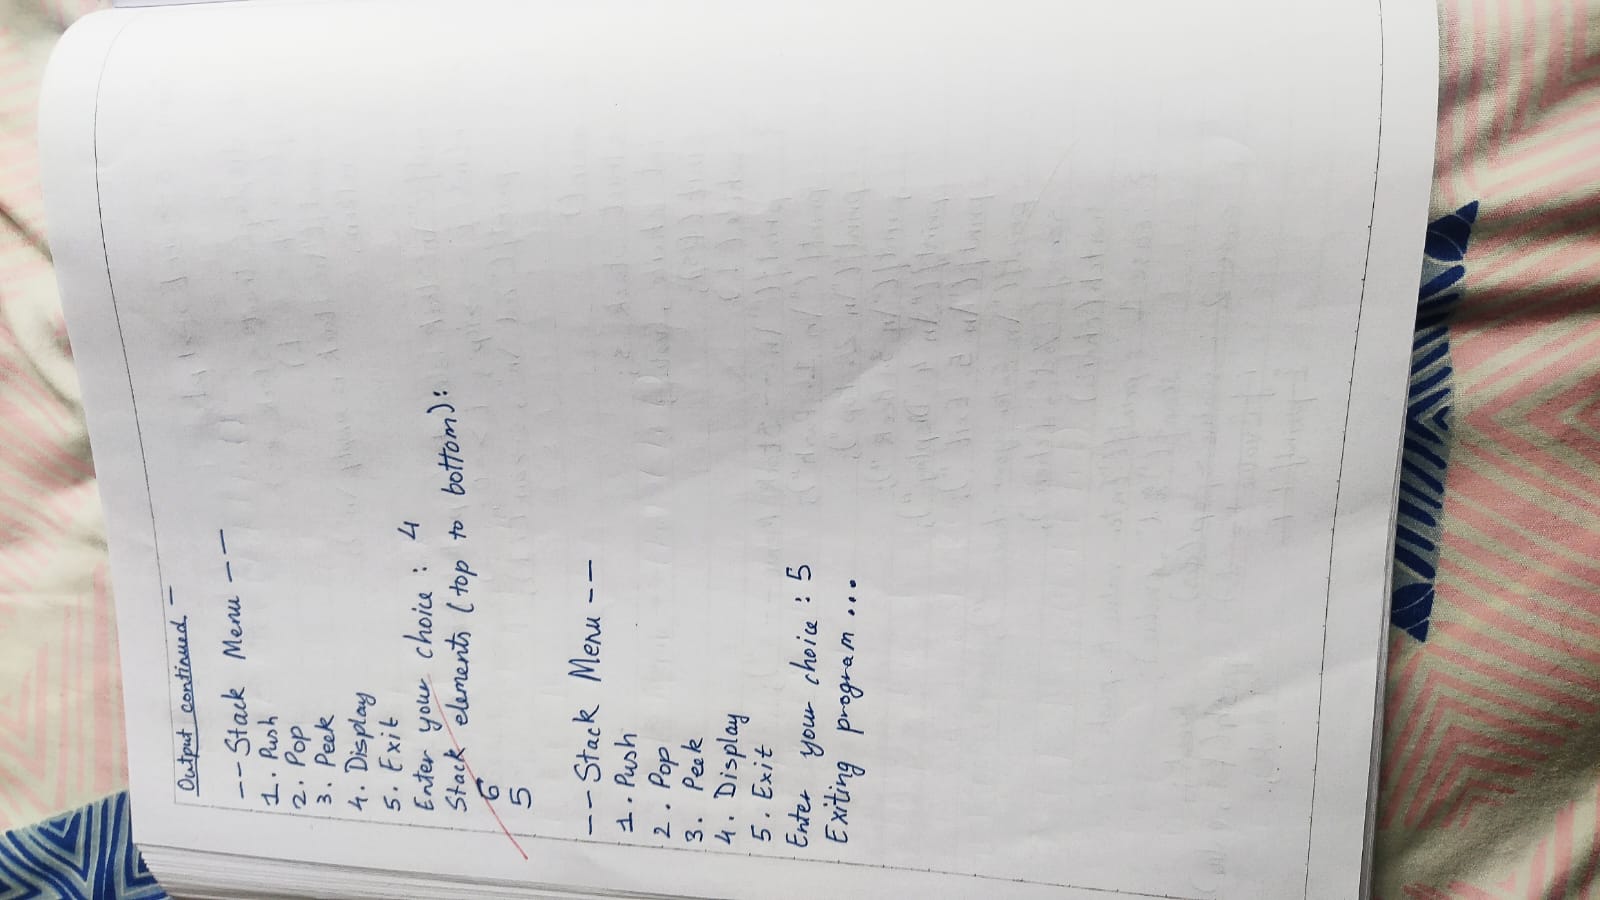 Output continued -
--Stack Menu --
1. Push
2. Pop
3. Peek
4. Display
5. Exit
Enter your choice : 4
Stack elements (top to bottom):
6
5
--Stack Menu--
1. Push
2. Pop
3. Peek
4. Display
5. Exit
Enter your choice : 5
Exiting program...